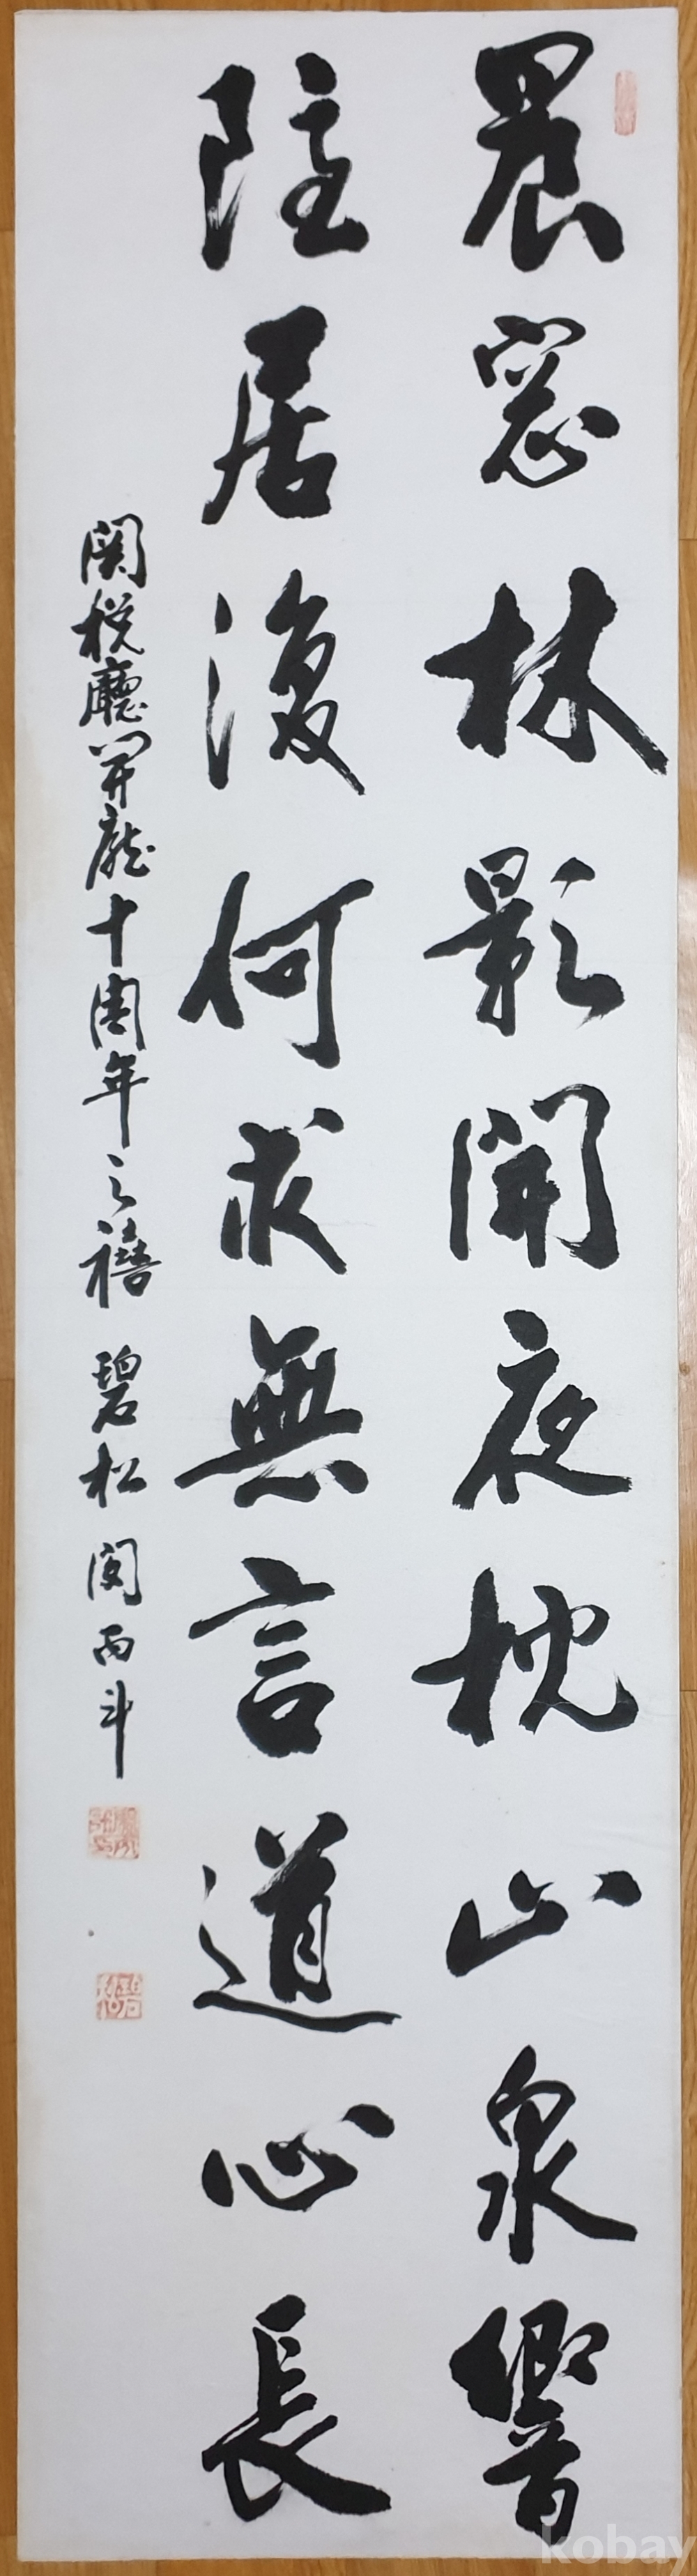 晨窓林影開夜枕山泉響
隱居復何求無言道心長
関税廳開廳十周年之禧 碧松 閔丙斗
kobay